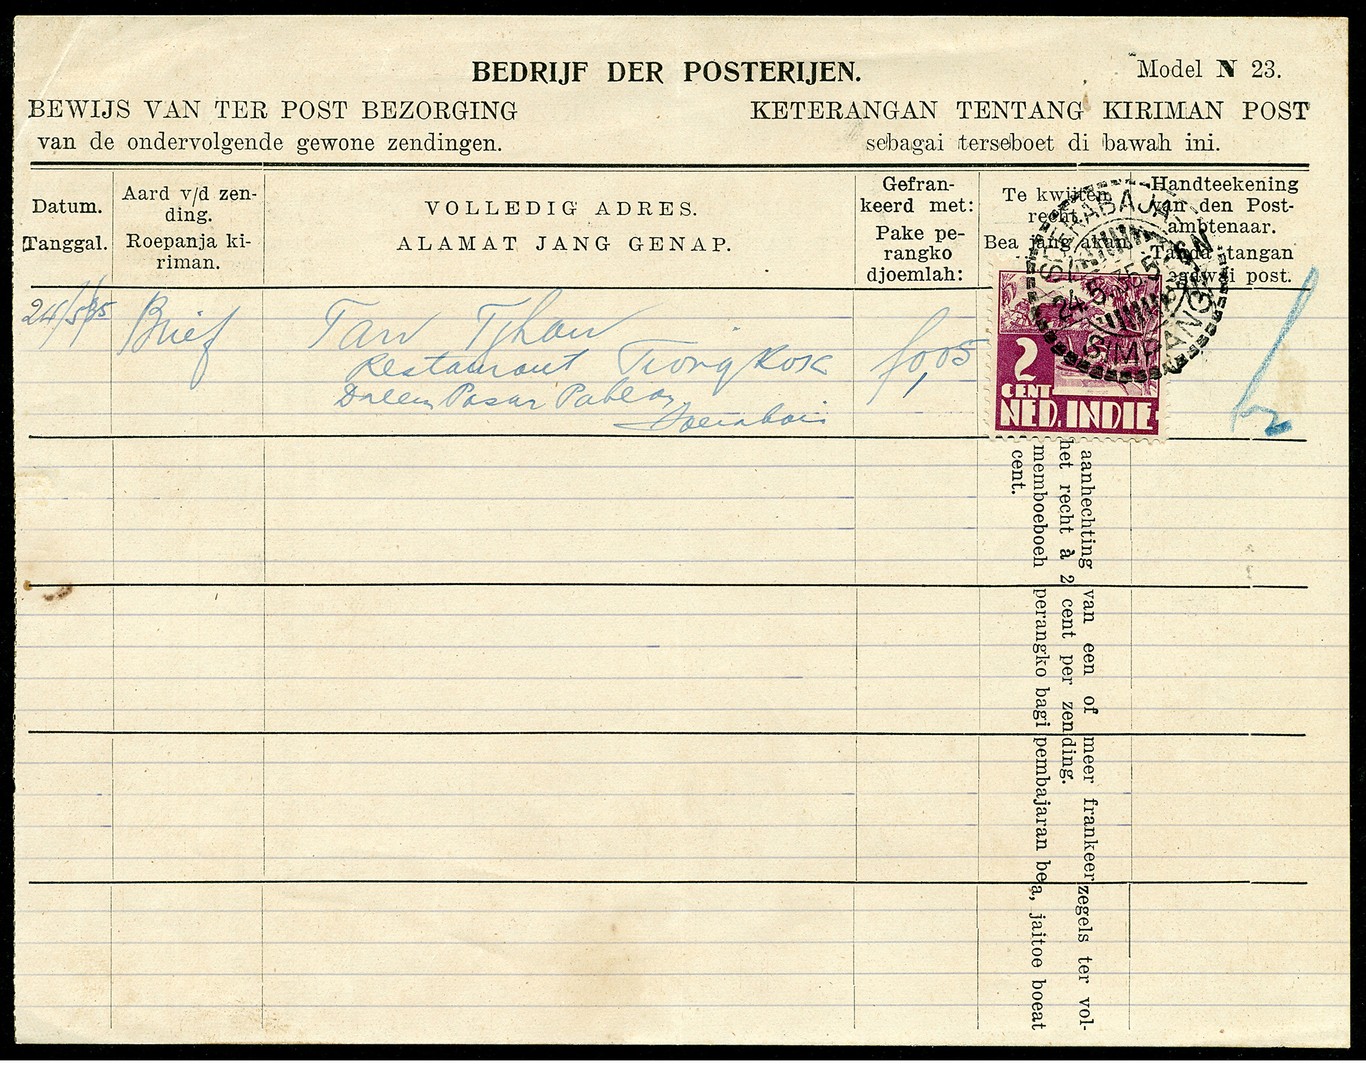 BEDRIJF DER POSTERIJEN.
Model N 23.
BEWIJS VAN TER POST BEZORGING
van de ondervolgende gewone zendingen.
KETERANGAN TENTANG KIRIMAN POST
sebagai terseboet di bawah ini.
Datum.
Tanggal.
Aard v/d zen-
ding.
Roepanja ki-
riman.
VOLLEDIG ADRES.
ALAMAT JANG GENAP.
Gefran-
keerd met:
Pake pe-
rangko
djoemlah:
Te kwijten
recht
Bea jang akan
Handteekening
van den Post-
ambtenaar.
Tanda tangan
post.
24/5/35
Brief
Tan Tjhan
Restaurant Tiong Kok
Pasar
f0,05
SOERABAJA
24.5.35.5-6N
SIMPANG
2
CENT
NED. INDIE
aanhechting van een of meer frankeerzegels ter vol-
het recht à 2 cent per zending.
memboeboeh perangko bagi pembajaran bea, jaitoe boeat
cent.